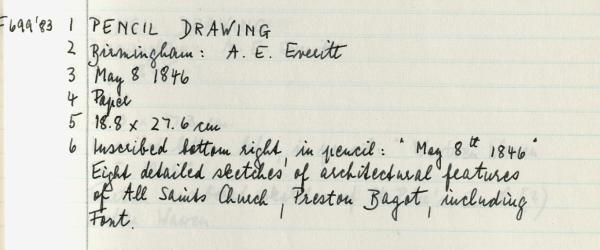 F699'83 1 PENCIL DRAWING
2 Birmingham: A. E. Everitt
3 May 8 1846
4 Paper
5 18.8 x 27.6 cm
6 Inscribed bottom right, in pencil: "May 8th 1846"
Eight detailed sketches of architectural features
of All Saints Church, Preston Bagot, including
Font.